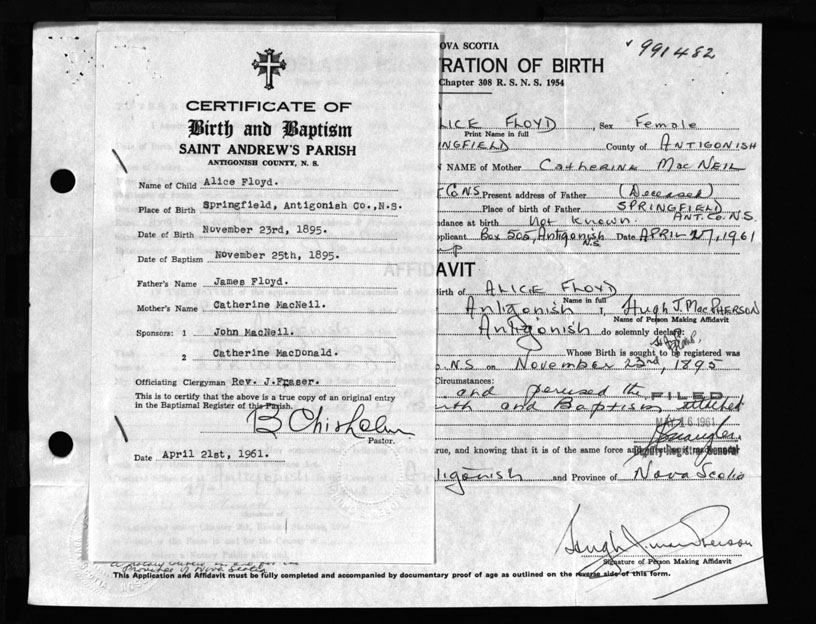 CERTIFICATE OF
Birth and Baptism
SAINT ANDREW'S PARISH
ANTIGONISH COUNTY, N. S.
Name of Child Alice Floyd.
Place of Birth Springfield, Antigonish Co.,N.S.
Date of Birth November 23rd, 1895.
Date of Baptism November 25th, 1895.
Father's Name James Floyd.
Mother's Name Catherine MacNeil.
Sponsors: 1 John MacNeil.
2 Catherine MacDonald.
Officiating Clergyman Rev. J.Fraser.
This is to certify that the above is a true copy of an original entry
in the Baptismal Register of this Parish.
B Chisholm
Pastor.
Date April 21st, 1961.
OVA SCOTIA
991482
RATION OF BIRTH
Chapter 308 R. S. N. S. 1954
LICE FLOYD, Sex Female
Print Name in full
INGFIELD County of ANTIGONISH
N NAME of Mother Catherine MacNeil
Co N.S. Present address of Father (Deceased)
Place of birth of Father SPRINGFIELD
ANT. CO. N.S.
dance at birth Not Known.
plicant Box 505, Antigonish N.S Date APRIL 27, 1961
AVIT
irth of ALICE FLOYD
Name in full
Antigonish I, Hugh J. MacPHERSON
Name of Person Making Affidavit
Antigonish do solemnly declare:
Whose Birth is sought to be registered was
N.S on November 23rd, 1895
Circumstances:
and perused the
FILED
rth and Baptism attached
MAY 16 1961
Deputy Registrar General
rue, and knowing that it is of the same force and
tigonish and Province of Nova Scotia
Hugh J. MacPherson
Signature of Person Making Affidavit
Province of Nova Scotia
This Application and Affidavit must be fully completed and accompanied by documentary proof of age as outlined on the reverse side of this form.